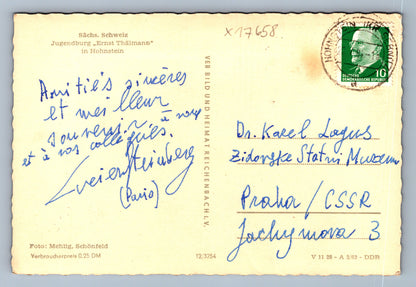 Sächs. Schweiz
Jugendburg „Ernst Thälmann"
in Hohnstein
x17658
Amitiés sincères
et meilleur
souvenir à vous
et à vos collègues.
(Paris)
VERBILD UND HEIMAT REICHENBACH I.V.
Foto: Mehlig, Schönfeld
Verbraucherpreis 0,25 DM
12/3754
HOHNSTEIN
DEUTSCHE
DEMOKRATISCHE REPUBLIK
10
Dr. Karel Lagus
Židovské Statni Muzeum
Praha / ČSSR
Jachymova 3
V 11 28 - A 3/63 - DDR